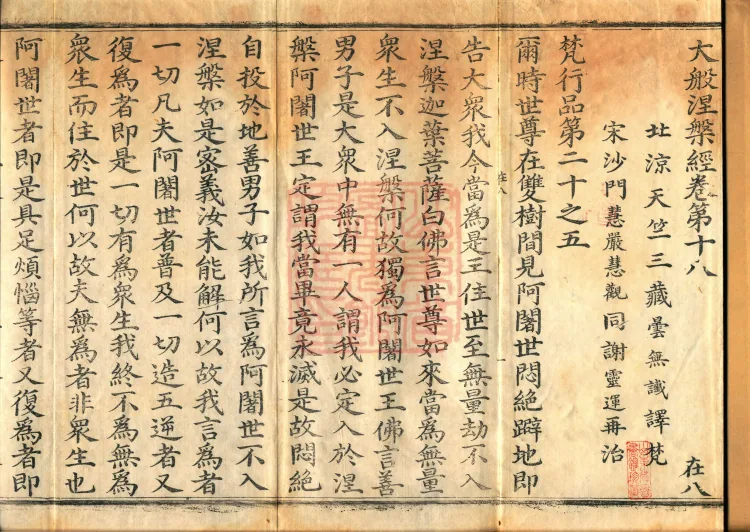 大般涅槃經卷第十八
在八
北涼天竺三藏曇無讖譯梵
宋沙門慧嚴慧觀同謝靈運再治
梵行品第二十之五
爾時世尊在雙樹間見阿闍世悶絕躃地即
告大衆我今當為是王住世至無量劫不入
涅槃迦葉菩薩白佛言世尊如來當為無量
衆生不入涅槃何故獨為阿闍世王佛言善
男子是大衆中無有一人謂我必定入於涅
槃阿闍世王定謂我當畢竟永滅是故悶絕
自投於地善男子如我所言為阿闍世不入
涅槃如是密義汝未能解何以故我言為者
一切凡夫阿闍世者普及一切造五逆者又
復為者即是一切有為衆生我終不為無為
衆生而住於世何以故夫無為者非衆生也
阿闍世者即是具足煩惱等者又復為者即